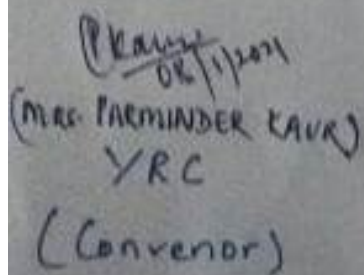 PKaur
08/1/2021
(MRS. PARMINDER KAUR)
YRC
(Convenor)